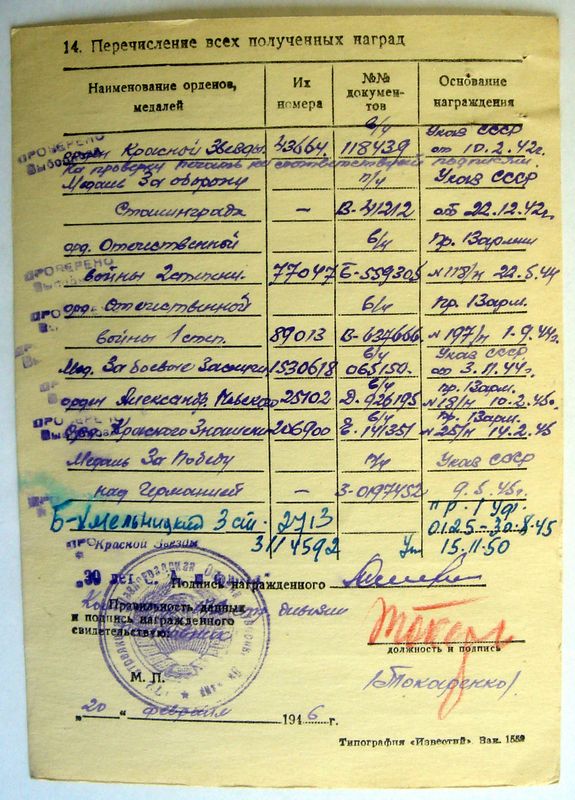 14. Перечисление всех полученных наград
Наименование орденов, медалей
Их номера
№№ документов
Основание награждения
в/ч Указ СССР
Орден Красной Звезды. 43664. 118439 от 10.2.42г.
На проверки печать не соответствующей подписями
Медаль За оборону п/ч Указ СССР
Сталинграда — В-41212 от 22.12.42г.
орд. Отечественной б/ч Пр. 1 Зармии
войны 2 степени. 77047 Б-559305 №118/н 22.5.44
орд. Отечественной б/ч Пр. 1 Зарм.
войны 1 степ. 89013 В-634666 №197/н 1.9.44г.
в/ч Указ СССР
Мед. За боевые Заслуги 1530618 065150. от 3.11.44г.
б/ч пр. 1 Зарм.
орден Александр. Невского 25102 Д-926195 №18/н 10.2.45г.
б/ч Пр. 1 Зарм.
Орд. Красного Знамени 206900 Е-141351 №25/н 14.2.45
Медаль За Победу п/ч Указ СССР
над Германией — З-0197452 9.5.45г.
Б-Хмельницкий 3 ст. 2713 ПР. 1 УФ. 0125-30.8.45
Красной Звезды 3114592 Ук 15.11.50
ПРОВЕРЕНО
ПРОВЕРЕНО
"30 лет
Подпись награжденного
Правильность данных
и подпись награжденного
свидетельствую:
должность и подпись
М. П.
/Токаренко/
„20“ февраля 1946 г.
Типография «Известий». Зак. 1559